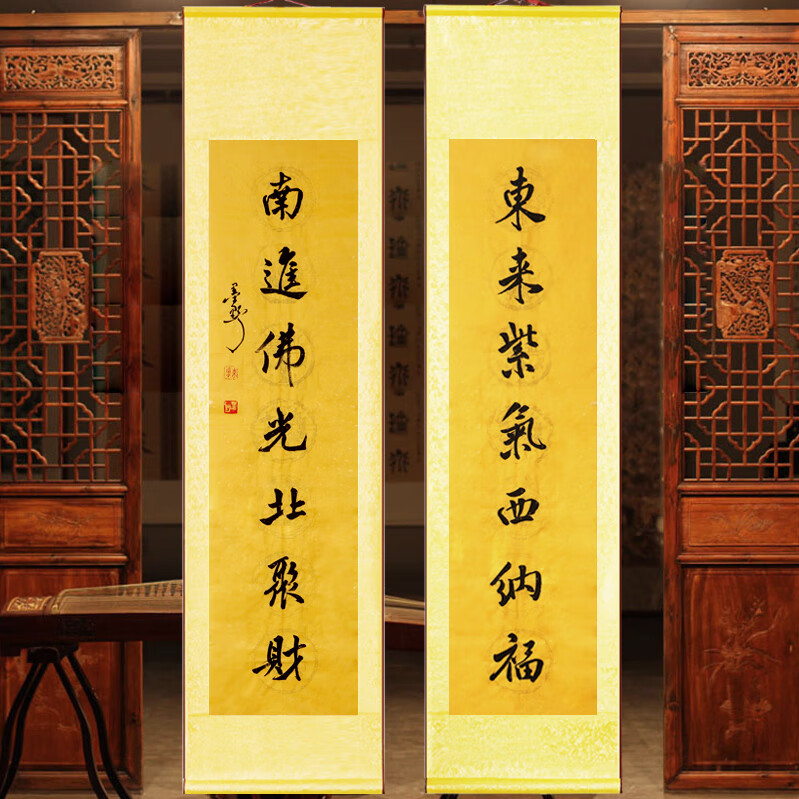 東来紫氣西纳福
南進佛光北聚財